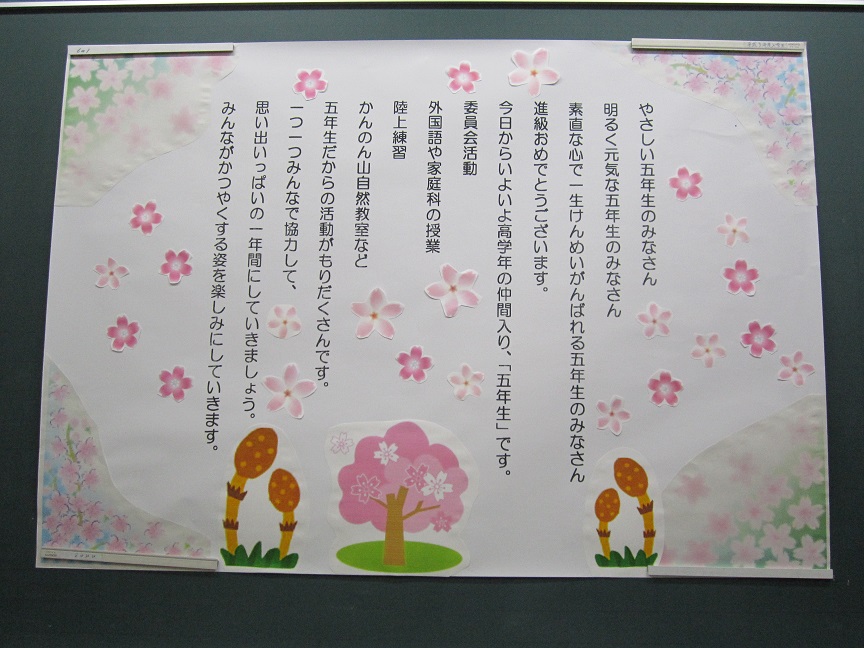 やさしい五年生のみなさん
明るく元気な五年生のみなさん
素直な心で一生けんめいがんばれる五年生のみなさん
進級おめでとうございます。
今日からいよいよ高学年の仲間入り、「五年生」です。
委員会活動
外国語や家庭科の授業
陸上練習
かんのん山自然教室など
五年生だからの活動がもりだくさんです。
一つ一つみんなで協力して、
思い出いっぱいの一年間にしていきましょう。
みんながかつやくする姿を楽しみにしていきます。